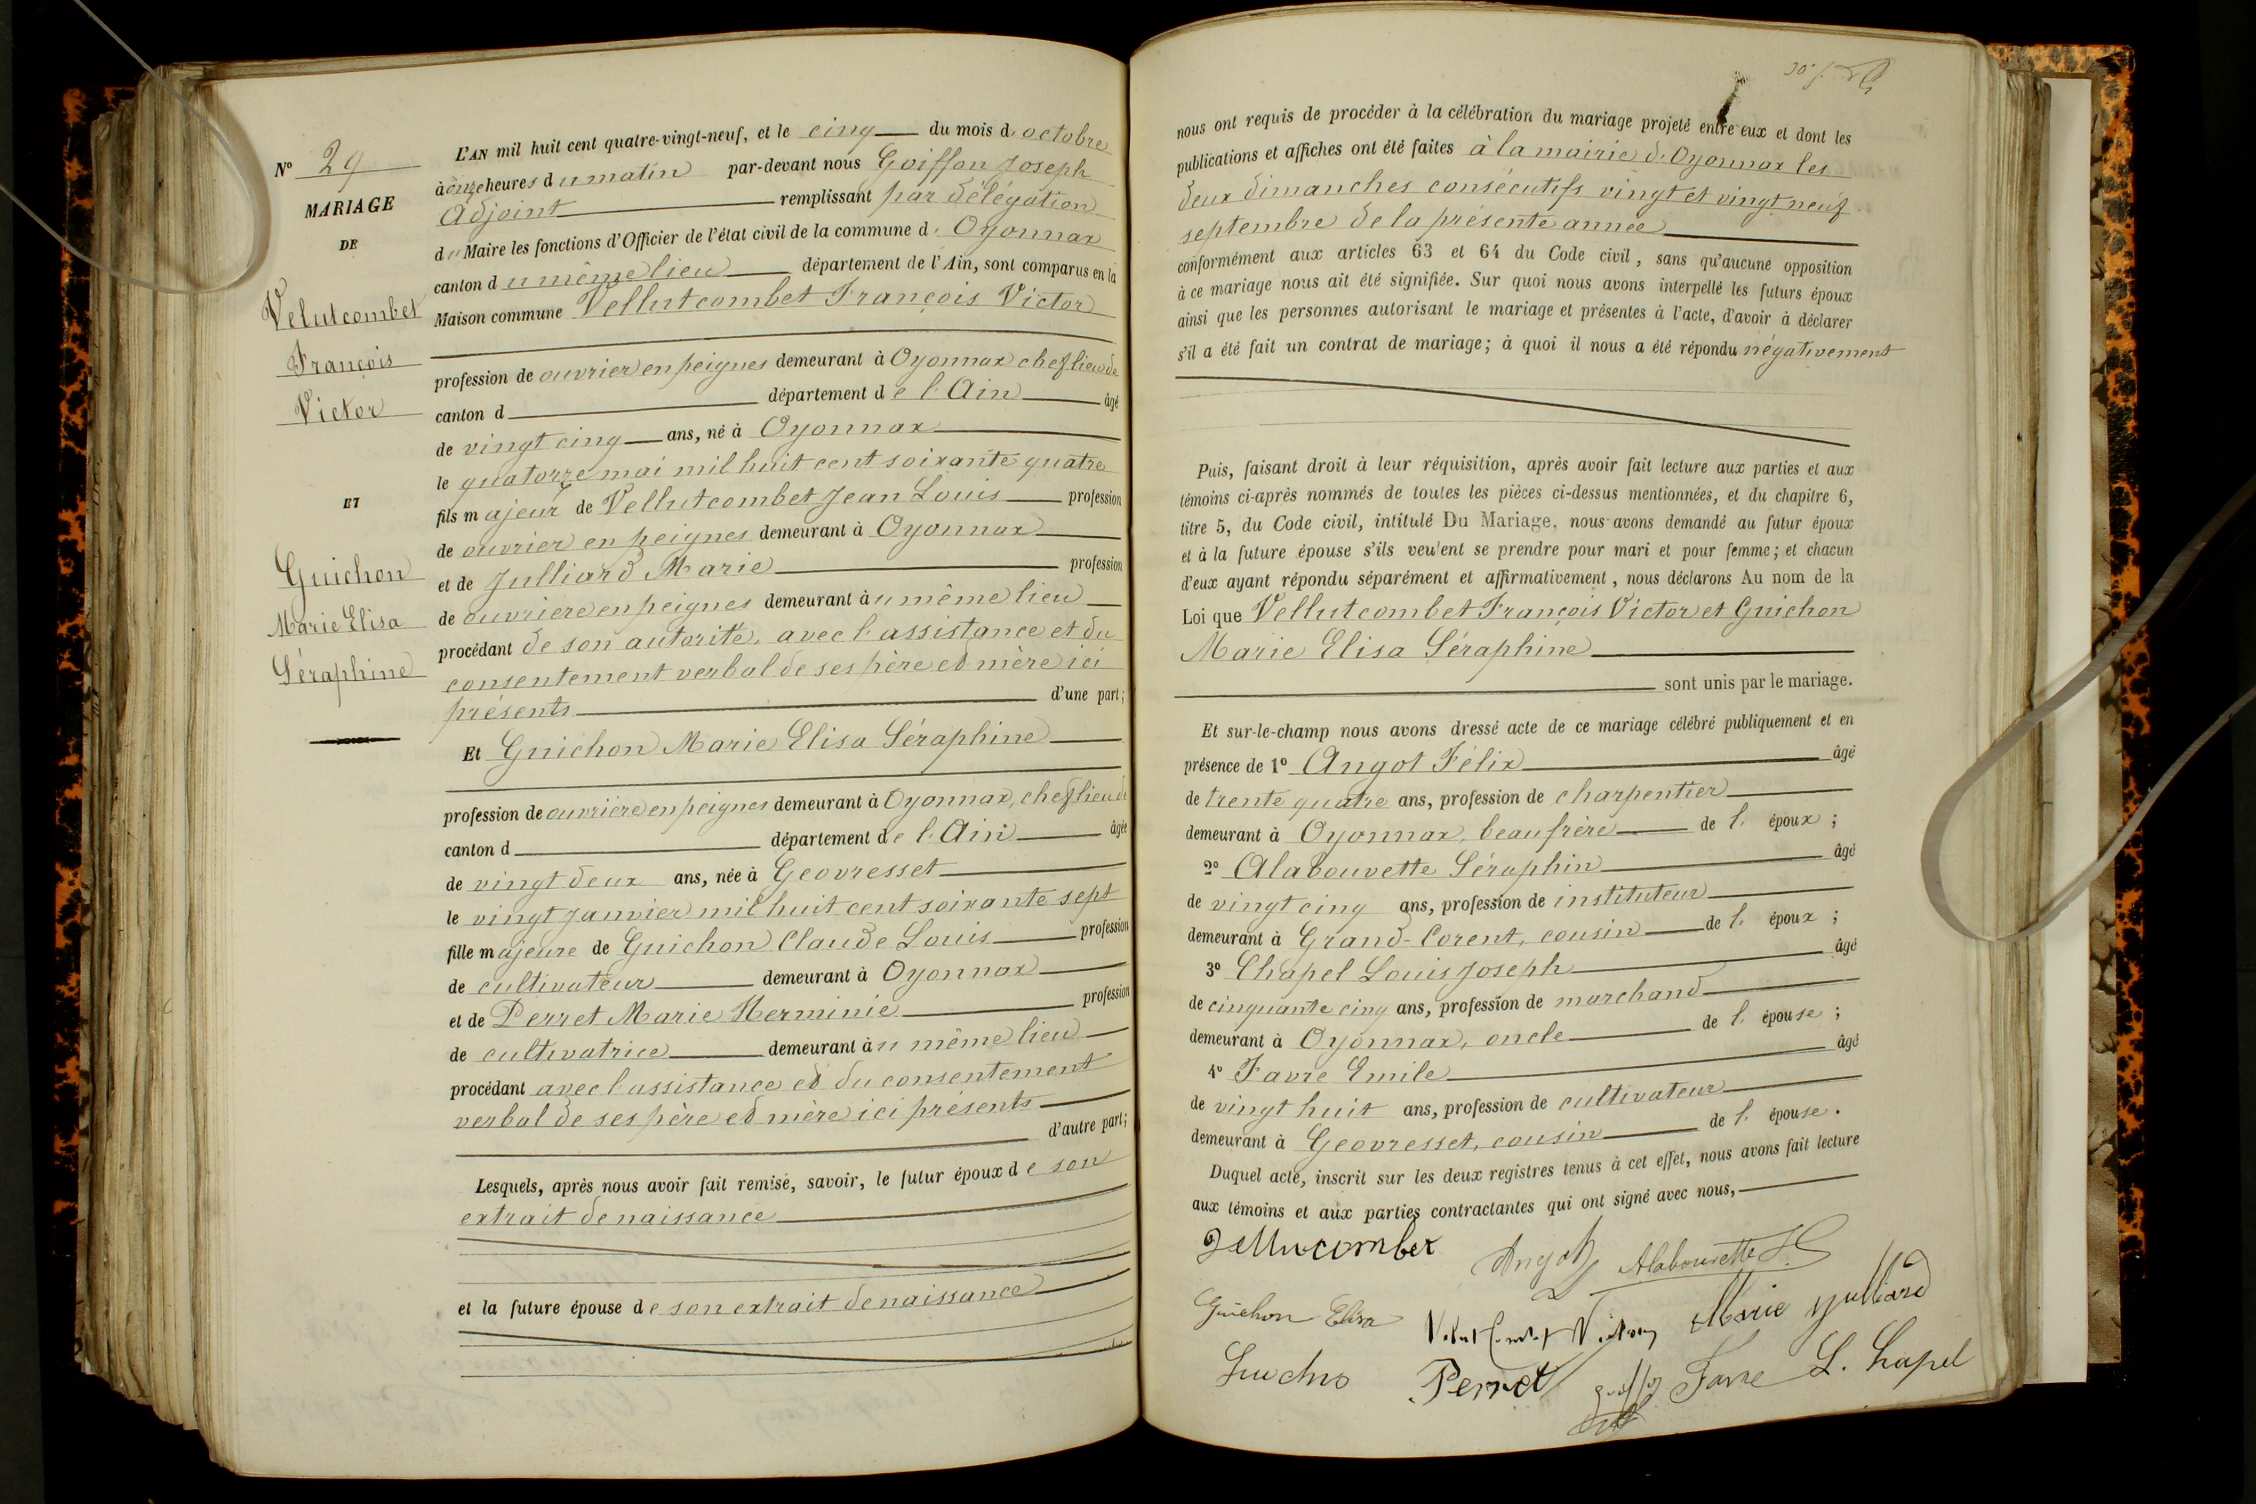 N° 29
MARIAGE
DE
Velutcombet
François
Victor
ET
Guichon
Marie Elisa
Séraphine
L'AN mil huit cent quatre-vingt-neuf, et le cinq du mois d'octobre
à onze heures du matin par-devant nous Goiffon Joseph
Adjoint remplissant par délégation
du Maire les fonctions d'Officier de l'état civil de la commune d'Oyonnax
canton du même lieu département de l'Ain, sont comparus en la
Maison commune Vellutcombet François Victor
profession de ouvrier en peignes demeurant à Oyonnax chef lieu de
canton d département de l'Ain âgé
de vingt cinq ans, né à Oyonnax
le quatorze mai mil huit cent soixante quatre
fils majeur de Vellutcombet Jean Louis profession
de ouvrier en peignes demeurant à Oyonnax
et de Julliard Marie profession
de ouvrière en peignes demeurant au même lieu
procédant de son autorité, avec l'assistance et du
consentement verbal de ses père et mère ici
présents d'une part;
Et Guichon Marie Elisa Séraphine
profession de ouvrière en peignes demeurant à Oyonnax, chef lieu de
canton d département de l'Ain âgée
de vingt deux ans, née à Geovresset
le vingt janvier mil huit cent soixante sept
fille majeure de Guichon Claude Louis profession
de cultivateur demeurant à Oyonnax
et de Perret Marie Herminie profession
de cultivatrice demeurant au même lieu
procédant avec l'assistance et du consentement
verbal de ses père et mère ici présents
d'autre part;
Lesquels, après nous avoir fait remise, savoir, le futur époux de son
extrait de naissance
et la future épouse de son extrait de naissance
nous ont requis de procéder à la célébration du mariage projeté entre eux et dont les
publications et affiches ont été faites à la mairie d'Oyonnax les
deux dimanches consécutifs vingt et vingt neuf
septembre de la présente année
conformément aux articles 63 et 64 du Code civil, sans qu'aucune opposition
à ce mariage nous ait été signifiée. Sur quoi nous avons interpellé les futurs époux
ainsi que les personnes autorisant le mariage et présentes à l'acte, d'avoir à déclarer
s'il a été fait un contrat de mariage; à quoi il nous a été répondu négativement
Puis, faisant droit à leur réquisition, après avoir fait lecture aux parties et aux
témoins ci-après nommés de toutes les pièces ci-dessus mentionnées, et du chapitre 6,
titre 5, du Code civil, intitulé Du Mariage, nous avons demandé au futur époux
et à la future épouse s'ils veulent se prendre pour mari et pour femme; et chacun
d'eux ayant répondu séparément et affirmativement, nous déclarons Au nom de la
Loi que Vellutcombet François Victor et Guichon
Marie Elisa Séraphine
sont unis par le mariage.
Et sur-le-champ nous avons dressé acte de ce mariage célébré publiquement et en
présence de 1° Angot Félix âgé
de trente quatre ans, profession de charpentier
demeurant à Oyonnax, beau frère de l'époux;
2° Alabouvette Séraphin âgé
de vingt cinq ans, profession de instituteur
demeurant à Grand-Corent, cousin de l'époux;
3° Chapel Louis Joseph âgé
de cinquante cinq ans, profession de marchand
demeurant à Oyonnax, oncle de l'épouse;
4° Favre Emile âgé
de vingt huit ans, profession de cultivateur
demeurant à Geovresset, cousin de l'épouse.
Duquel acte, inscrit sur les deux registres tenus à cet effet, nous avons fait lecture
aux témoins et aux parties contractantes qui ont signé avec nous,
Angot Alabouvette
Guichon Elisa Marie Julliard
Perret Favre L. Chapel